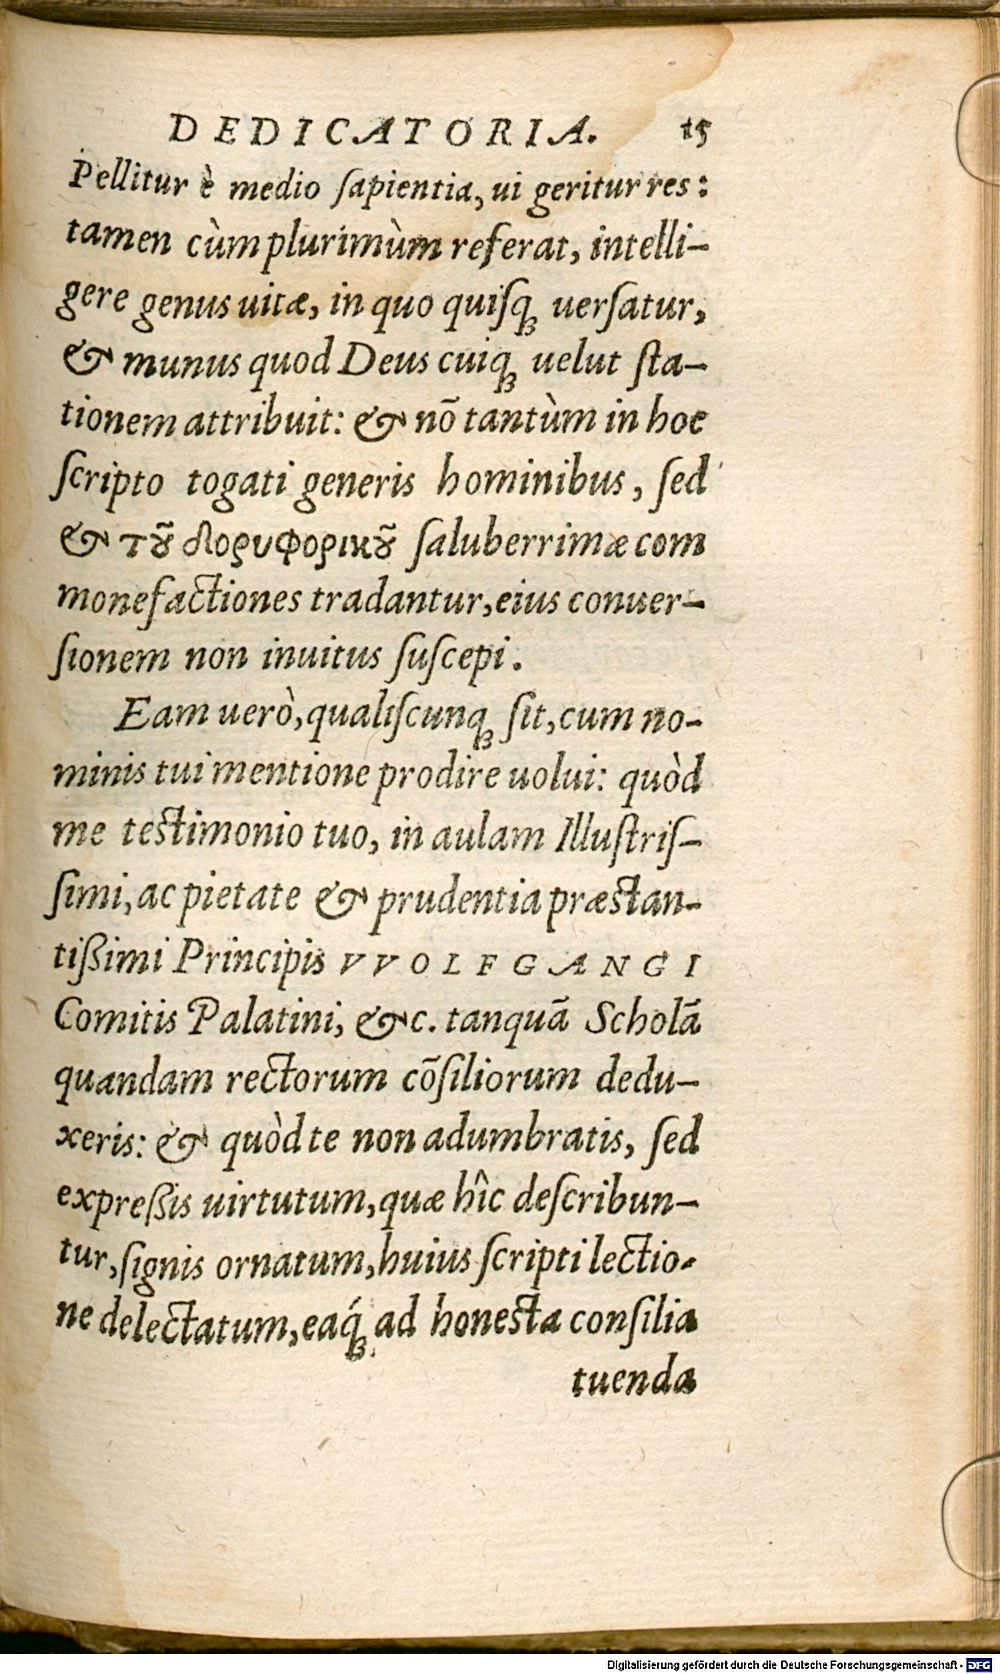 DEDICATORIA. 15
Pellitur è medio ſapientia, ui geritur res:
tamen cùm plurimùm referat, intelli-
gere genus uitæ, in quo quiſq; uerſatur,
& munus quod Deus cuiq; uelut ſta-
tionem attribuit: & nõ tantùm in hoc
ſcripto togati generis hominibus, ſed
& τȣ͂ δορυφορικȣ͂ ſaluberrimæ com
monefactiones tradantur, eius conuer-
ſionem non inuitus ſuſcepi.
Eam uerò, qualiſcunq; ſit, cum no-
minis tui mentione prodire uolui: quòd
me testimonio tuo, in aulam Illuſtriſ-
ſimi, ac pietate & prudentia præstan-
tißimi Principis VVOLFGANGI
Comitis Palatini, &c. tanquã Scholã
quandam rectorum cõſiliorum dedu-
xeris: & quòd te non adumbratis, ſed
expreßis uirtutum, quæ hîc deſcribun-
tur, ſignis ornatum, huius ſcripti lectio-
ne delectatum, eaq́; ad honesta conſilia
tuenda
Digitalisierung gefördert durch die Deutsche Forschungsgemeinschaft - DFG